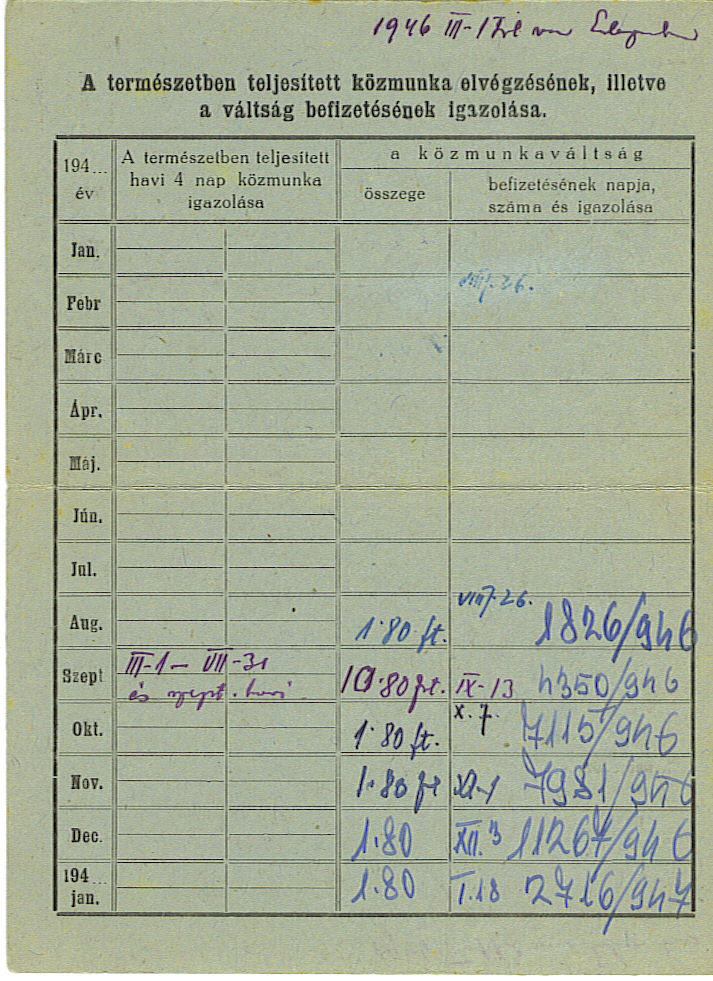 1946 III-1
A természetben teljesített közmunka elvégzésének, illetve
a váltság befizetésének igazolása.
194... év
A természetben teljesített
havi 4 nap közmunka
igazolása
a közmunkaváltság
összege
befizetésének napja,
száma és igazolása
Jan.
Febr
VIII. 26.
Márc
Ápr.
Máj.
Jún.
Jul.
Aug. 1·80 ft. VIII. 26. 1826/946
Szept III-1 — VII-31
és szept. havi 10·80 ft. IX-13 4350/946
Okt. 1·80 ft. X. 7. 7115/946
Nov. 1·80 ft XI-1 7981/946
Dec. 1·80 XII. 3 11267/946
194...
jan. 1·80 I. 18 2716/947